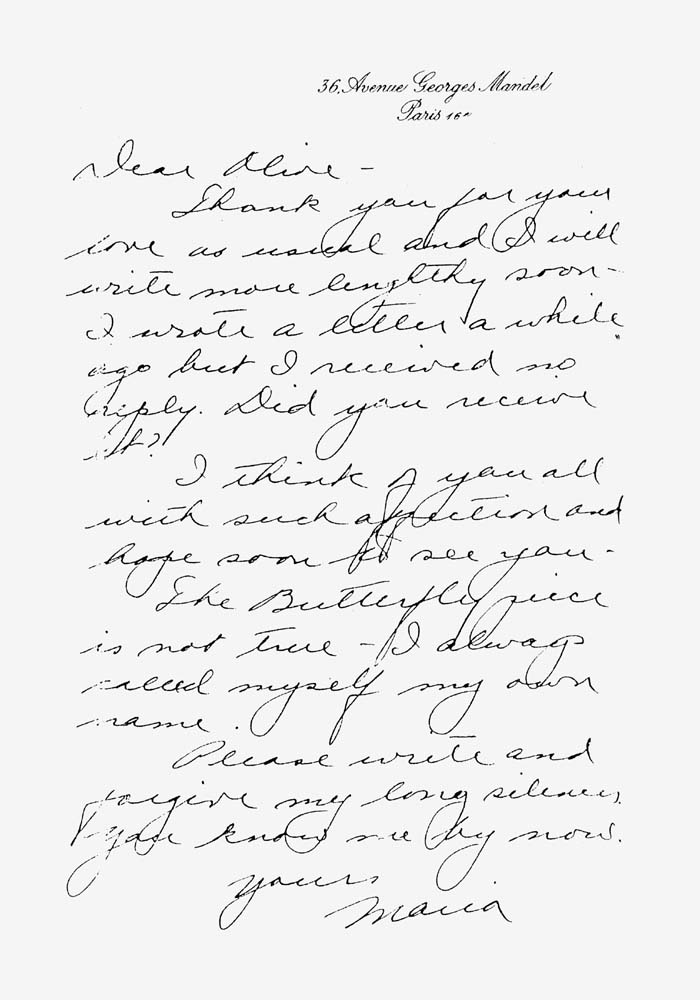 36, Avenue Georges Mandel
Paris 16e
Dear Olive –
Thank you for your
love as usual and I will
write more lengthy soon –
I wrote a letter a while
ago but I received no
reply. Did you receive
it?
I think of you all
with such affection and
hope soon to see you –
The Butterfly piece
is not true – I always
called myself my own
name.
Please write and
forgive my long silence,
you know me by now.
yours
Maria